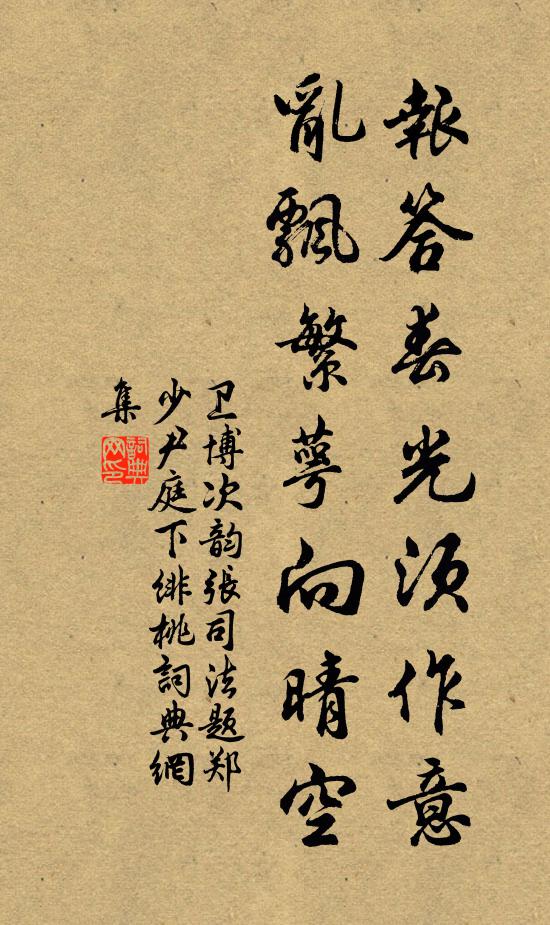 報答春光須作意
亂飄繁萼向晴空
卫博次韵張司法題郑
少尹庭下绯桃詞典網
集
詞典网印